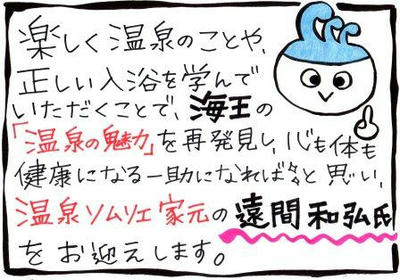 楽しく温泉のことや、
正しい入浴を学んで
いただくことで、海王の
「温泉の魅力」を再発見し、心も体も
健康になる一助になればと思い、
温泉ソムリエ家元の遠間和弘氏
をお迎えします。